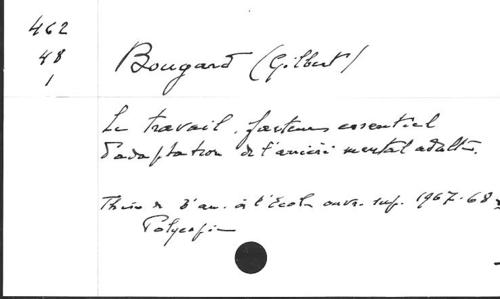 462
48
1
Bougard (Gilbert)
Le travail, facteur essentiel
d'adaptation de l'arriéré mental adulte.
Thèse de 3e an. à l'Ecole ouvr. sup. 1967-68
Polycopié